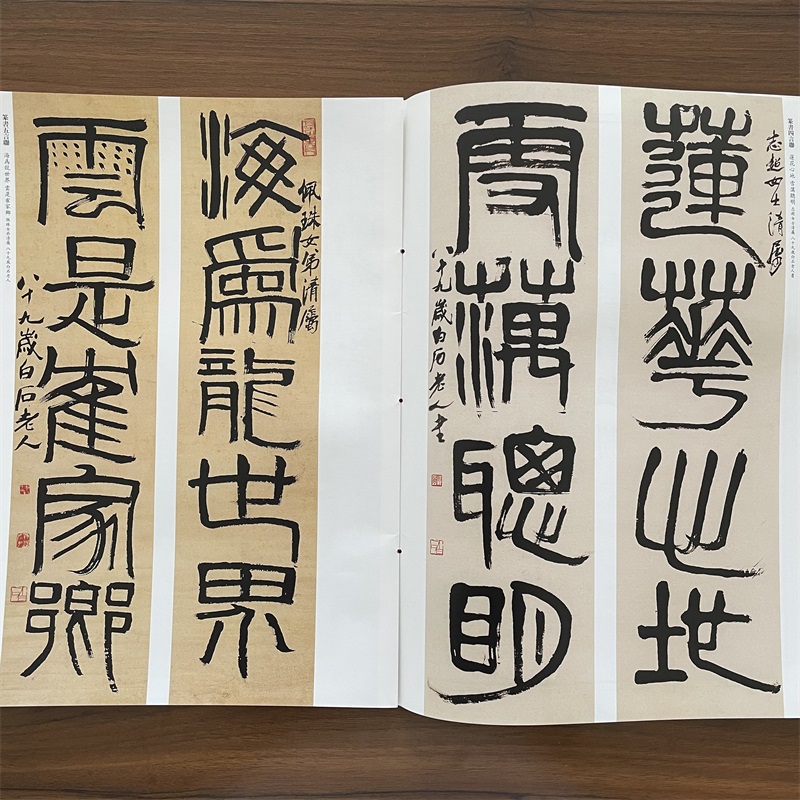 篆書四言聯 蓮花心地 雪藕聰明
志超女士清屬
蓮華心地
雪藕聰明
八十九歲白石老人書
佩珠女弟清屬
海爲龍世界
雲是崔家鄉
八十九歲白石老人
篆書五言聯 海為龍世界 雲是崔家鄉